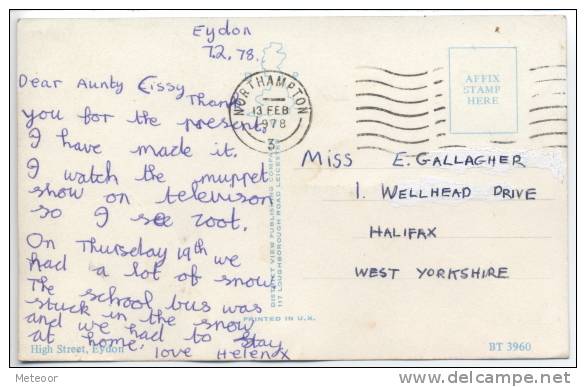 Eydon
7.2.78.
Dear Aunty Cissy
Thank
you for the present,
I have made it.
I watch the muppet
show on televison
so I see zoot.
On Thursday 19th we
had a lot of snow.
The school bus was
stuck in the snow
and we had to stay
at home.
love Helen x
High Street, Eydon
NORTHAMPTON
13 FEB
1978
3
DISTRICT VIEW PUBLISHING COMPANY
117 LOUGHBOROUGH ROAD LEICESTER
PRINTED IN U.K.
AFFIX
STAMP
HERE
Miss E. GALLAGHER
1. WELLHEAD DRIVE
HALIFAX
WEST YORKSHIRE
BT 3960
delcampe.net
Meteoor